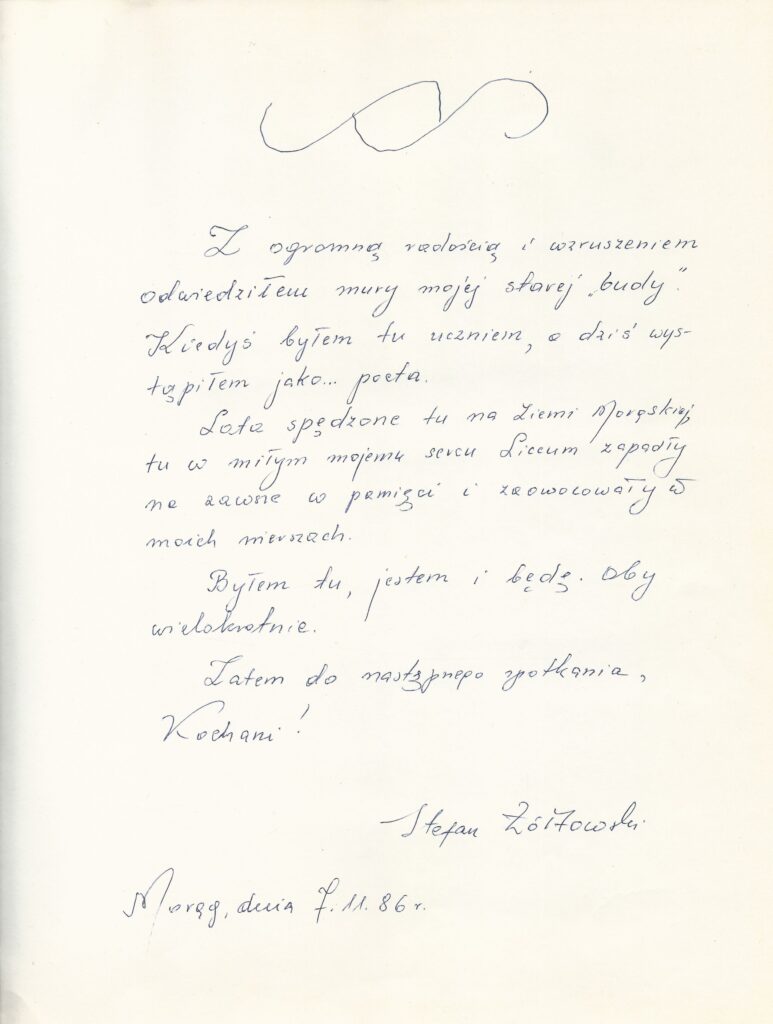 Z ogromną radością i wzruszeniem
odwiedziłem mury mojej starej „budy”.
Kiedyś byłem tu uczniem, a dziś wys-
tąpiłem jako... poeta.
Lata spędzone tu na Ziemi Morąskiej,
tu w miłym mojemu sercu Liceum zapadły
na zawsze w pamięci i zaowocowały w
moich wierszach.
Byłem tu, jestem i będę. Oby
wielokrotnie.
Zatem do następnego spotkania,
Kochani!
Stefan Żółtowski
Morąg, dnia 7.11.86 r.